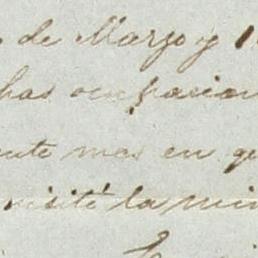 de Marzo y 1
has ocupacion
ente mas en qu
visité la min